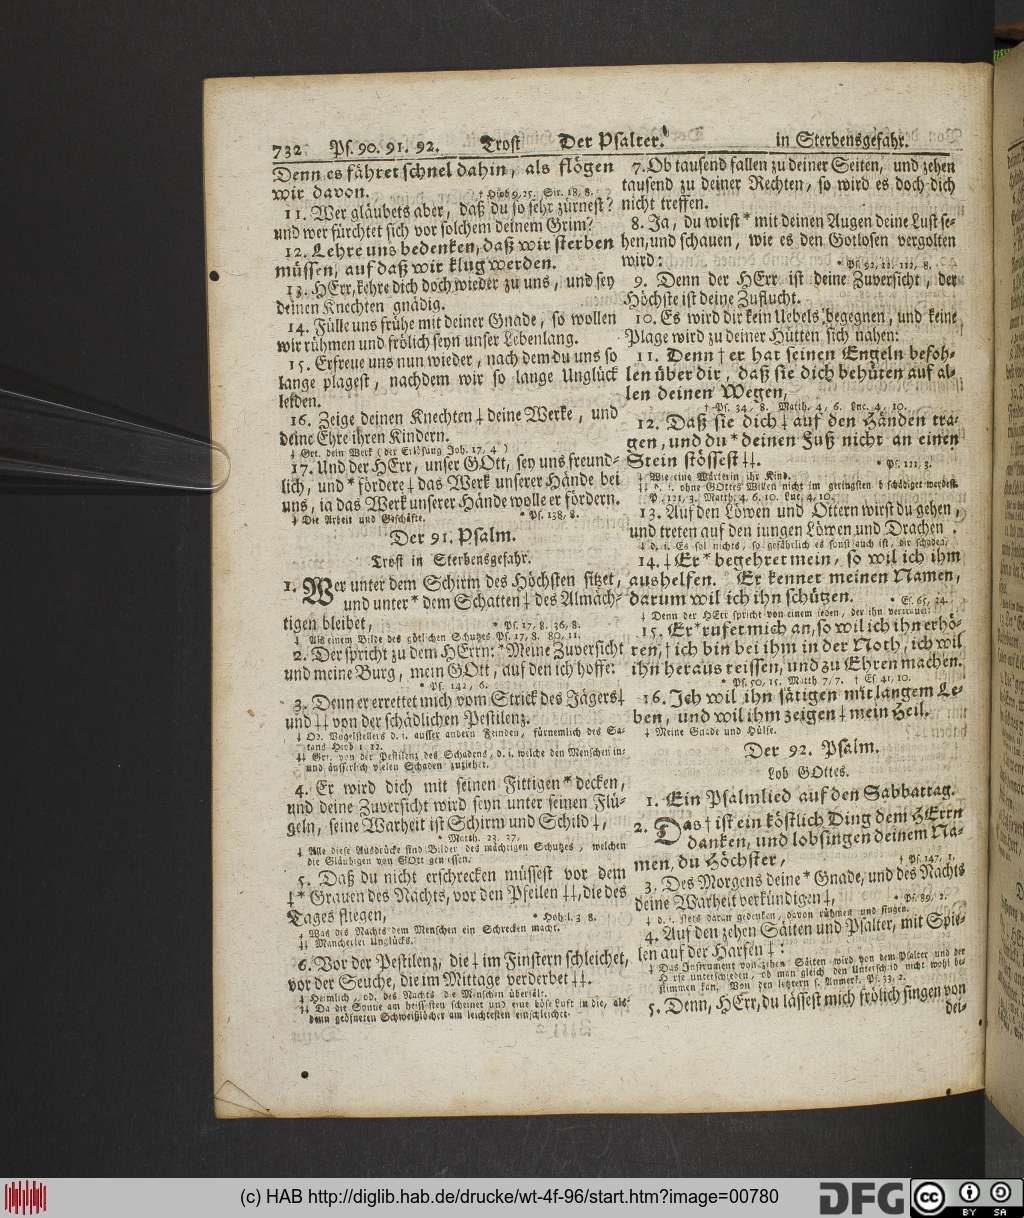 732 Ps. 90. 91. 92. Trost Der Psalter. in Sterbensgefahr.
Denn es fähret schnel dahin, als flögen
wir davon. † Hiob 9, 25. Sir. 18, 8.
11. Wer gläubets aber, daß du so sehr zürnest?
und wer fürchtet sich vor solchem deinem Grim?
12. Lehre uns bedenken, daß wir sterben
müssen, auf daß wir klug werden.
13. HErr, kehre dich doch wieder zu uns, und sey
deinen Knechten gnädig.
14. Fülle uns frühe mit deiner Gnade, so wollen
wir rühmen und frölich seyn unser Lebenlang.
15. Erfreue uns nun wieder, nach dem du uns so
lange plagest, nachdem wir so lange Unglück
leiden.
16. Zeige deinen Knechten ‡ deine Werke, und
deine Ehre ihren Kindern.
‡ Grt. dein Werk (der Erlösung Joh. 17, 4)
17. Und der HErr, unser GOtt, sey uns freund-
lich, und * fördere ‡ das Werk unserer Hände bei
uns, ia das Werk unserer Hände wolle er fördern.
‡ Die Arbeit und Geschäfte. * Ps. 138, 8.
Der 91. Psalm.
Trost in Sterbensgefahr.
1. Wer unter dem Schirm des Höchsten sitzet,
und unter * dem Schatten ‡ des Almäch-
tigen bleibet, * Ps. 17, 8. 36, 8.
‡ Aus einem Bilde des götlichen Schutzes Ps. 17, 8. 80, 11.
2. Der spricht zu dem HErrn: * Meine Zuversicht
und meine Burg, mein GOtt, auf den ich hoffe:
* Ps. 142, 6.
3. Denn er errettet mich vom Strick des Jägers ‡
und ‡‡ von der schädlichen Pestilenz.
‡ Od. Vogelstellers d. i. ausser andern Feinden, fürnemlich des Sa-
tans Hiob 1, 12.
‡‡ Grt. von der Pestilenz des Schadens, d. i. welche den Menschen in-
und äusserlich vielen Schaden zuziehet.
4. Er wird dich mit seinen Fittigen * decken,
und deine Zuversicht wird seyn unter seinen Flü-
geln, seine Warheit ist Schirm und Schild ‡,
* Matth. 23, 37.
‡ Alle diese Ausdrücke sind Bilder des mächtigen Schutzes, welchen
die Gläubigen von GOtt geniessen.
5. Daß du nicht erschrecken müssest vor dem
‡ * Grauen des Nachts, vor den Pfeilen ‡‡, die des
Tages fliegen, * Hohel. 3, 8.
‡ Was des Nachts dem Menschen ein Schrecken macht.
‡‡ Mancherlei Unglücks.
6. Vor der Pestilenz, die ‡ im Finstern schleichet,
vor der Seuche, die im Mittage verderbet ‡‡.
‡ Heimlich, od. des Nachts die Menschen überfält.
‡‡ Da die Sonne am heissesten scheinet und eine böse Luft in die, als-
denn geöfneten Schweißlöcher am leichtesten einschleichet.
7. Ob tausend fallen zu deiner Seiten, und zehen
tausend zu deiner Rechten, so wird es doch dich
nicht treffen.
8. Ja, du wirst * mit deinen Augen deine Lust se-
hen, und schauen, wie es den Gotlosen vergolten
wird: * Ps. 92, 12. 112, 8.
9. Denn der HErr ist deine Zuversicht, der
Höchste ist deine Zuflucht.
10. Es wird dir kein Uebels begegnen, und keine
Plage wird zu deiner Hütten sich nahen:
11. Denn † er hat seinen Engeln befoh-
len über dir, daß sie dich behüten auf al-
len deinen Wegen,
† Ps. 34, 8. Matth. 4, 6. Luc. 4, 10.
12. Daß sie dich ‡ auf den Händen tra-
gen, und du * deinen Fuß nicht an einen
Stein stössest ‡‡. * Ps. 121, 3.
‡ Wie eine Wärterin ihr Kind.
‡‡ d. i. ohne GOttes Willen nicht im geringsten beschädiget werdest.
Ps. 121, 3. Matth. 4, 6. 10. Luc. 4, 10.
13. Auf den Löwen und Ottern wirst du gehen,
und treten auf den iungen Löwen und Drachen.
‡ d. i. Es sol nichts, so gefährlich es sonst auch ist, dir schaden.
14. ‡ Er * begehret mein, so wil ich ihm
aushelfen. Er kennet meinen Namen,
darum wil ich ihn schützen. * Es. 65, 24.
‡ Denn der HErr spricht von einem ieden, der ihn vertrauet:
15. Er * rufet mich an, so wil ich ihn erhö-
ren, † ich bin bei ihm in der Noth, ich wil
ihn heraus reissen, und zu Ehren machen.
* Ps. 50, 15. Matth. 7, 7. † Es. 41, 10.
16. Ich wil ihn sätigen mit langem Le-
ben, und wil ihm zeigen ‡ mein Heil.
‡ Meine Gnade und Hülfe.
Der 92. Psalm.
Lob GOttes.
1. Ein Psalmlied auf den Sabbattag.
2. Das † ist ein köstlich Ding dem HErrn
danken, und lobsingen deinem Na-
men, du Höchster, † Ps. 147, 1.
3. Des Morgens deine * Gnade, und des Nachts
deine Warheit verkündigen ‡, * Ps. 89, 2.
‡ d. i. stets daran gedenken, davon rühmen und singen.
4. Auf den zehen Säiten und Psalter, mit Spie-
len auf der Harfen ‡:
‡ Das Instrument von zehen Säiten wird von dem Psalter und der
Harfe unterschieden, ob man gleich den Unterschied nicht wohl be-
stimmen kan. Von den letztern s. Anmerk. Ps. 33, 2.
5. Denn, HErr, du lässest mich frölich singen von
dei-
(c) HAB http://diglib.hab.de/drucke/wt-4f-96/start.htm?image=00780
DFG
cc
BY SA